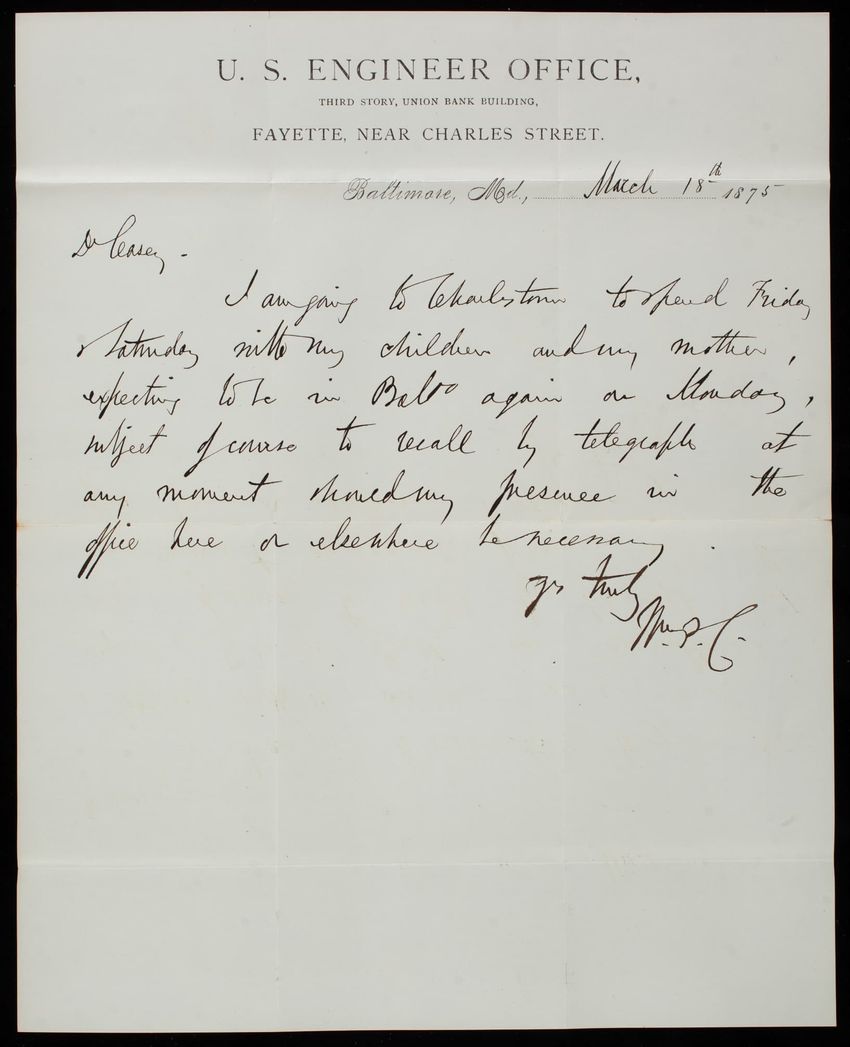 U. S. ENGINEER OFFICE,
THIRD STORY, UNION BANK BUILDING,
FAYETTE, NEAR CHARLES STREET.
Baltimore, Md., March 18th 1875
Dr Casey -
I am going to Charlestown to spend Friday
& Saturday with my children and my mother,
expecting to be in Balto again on Monday,
subject of course to recall by telegraph at
any moment should my presence in the
office here or elsewhere be necessary.
yrs truly
Wm. P. C.